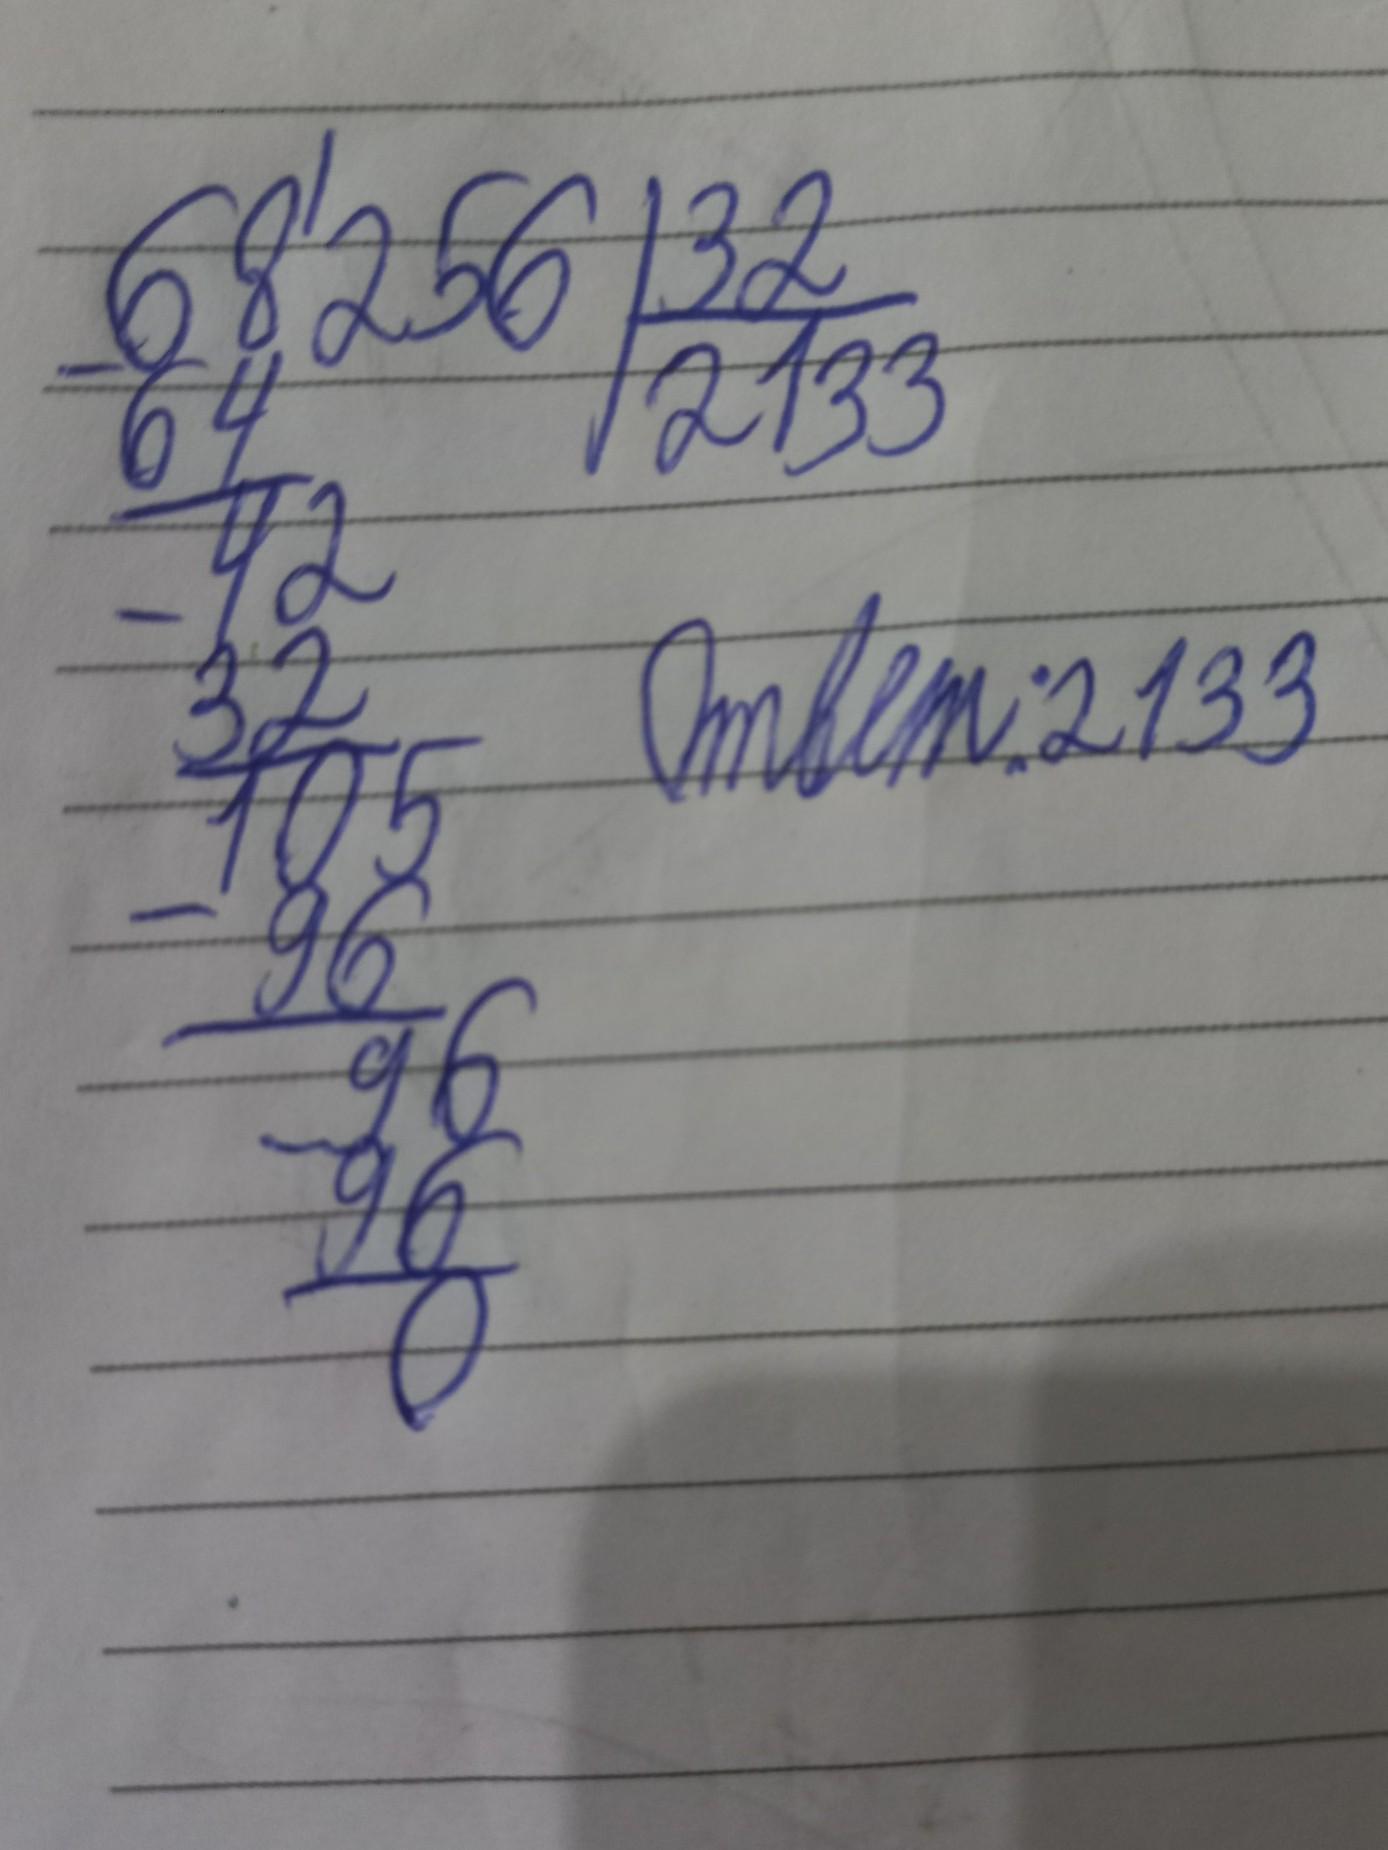 68'256 | 32
- 64 2133
42
- 32
105
- 96
96
- 96
0
Ответ: 2133